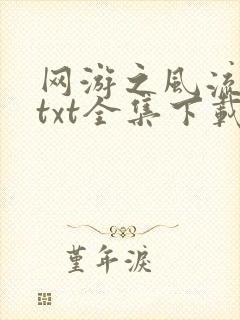 网游之风流
txt全集下载
堇年淚